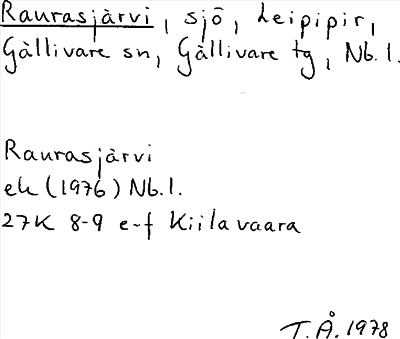 Raurasjärvi, sjö, Leipipir,
Gällivare sn, Gällivare tg, Nb.l.
Raurasjärvi
ek (1976) Nb.l.
27K 8-9 e-f Kiilavaara
T.Å. 1978